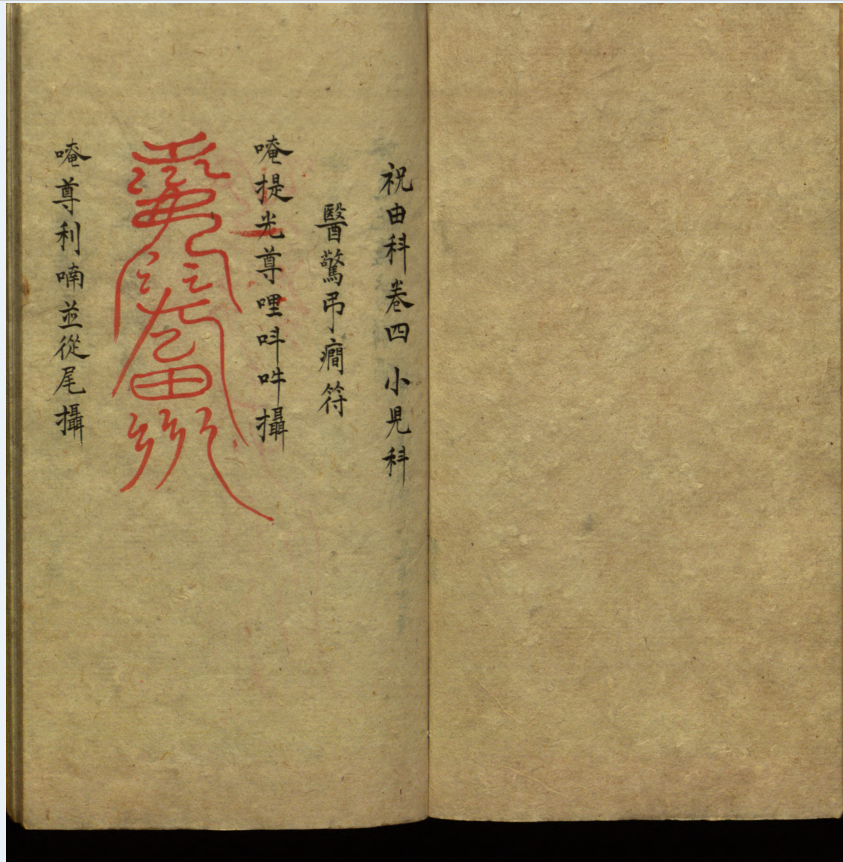 祝由科卷四 小児科
醫驚弔癇符
唵提光尊哩呌吽攝
唵尊利喃並從尾攝